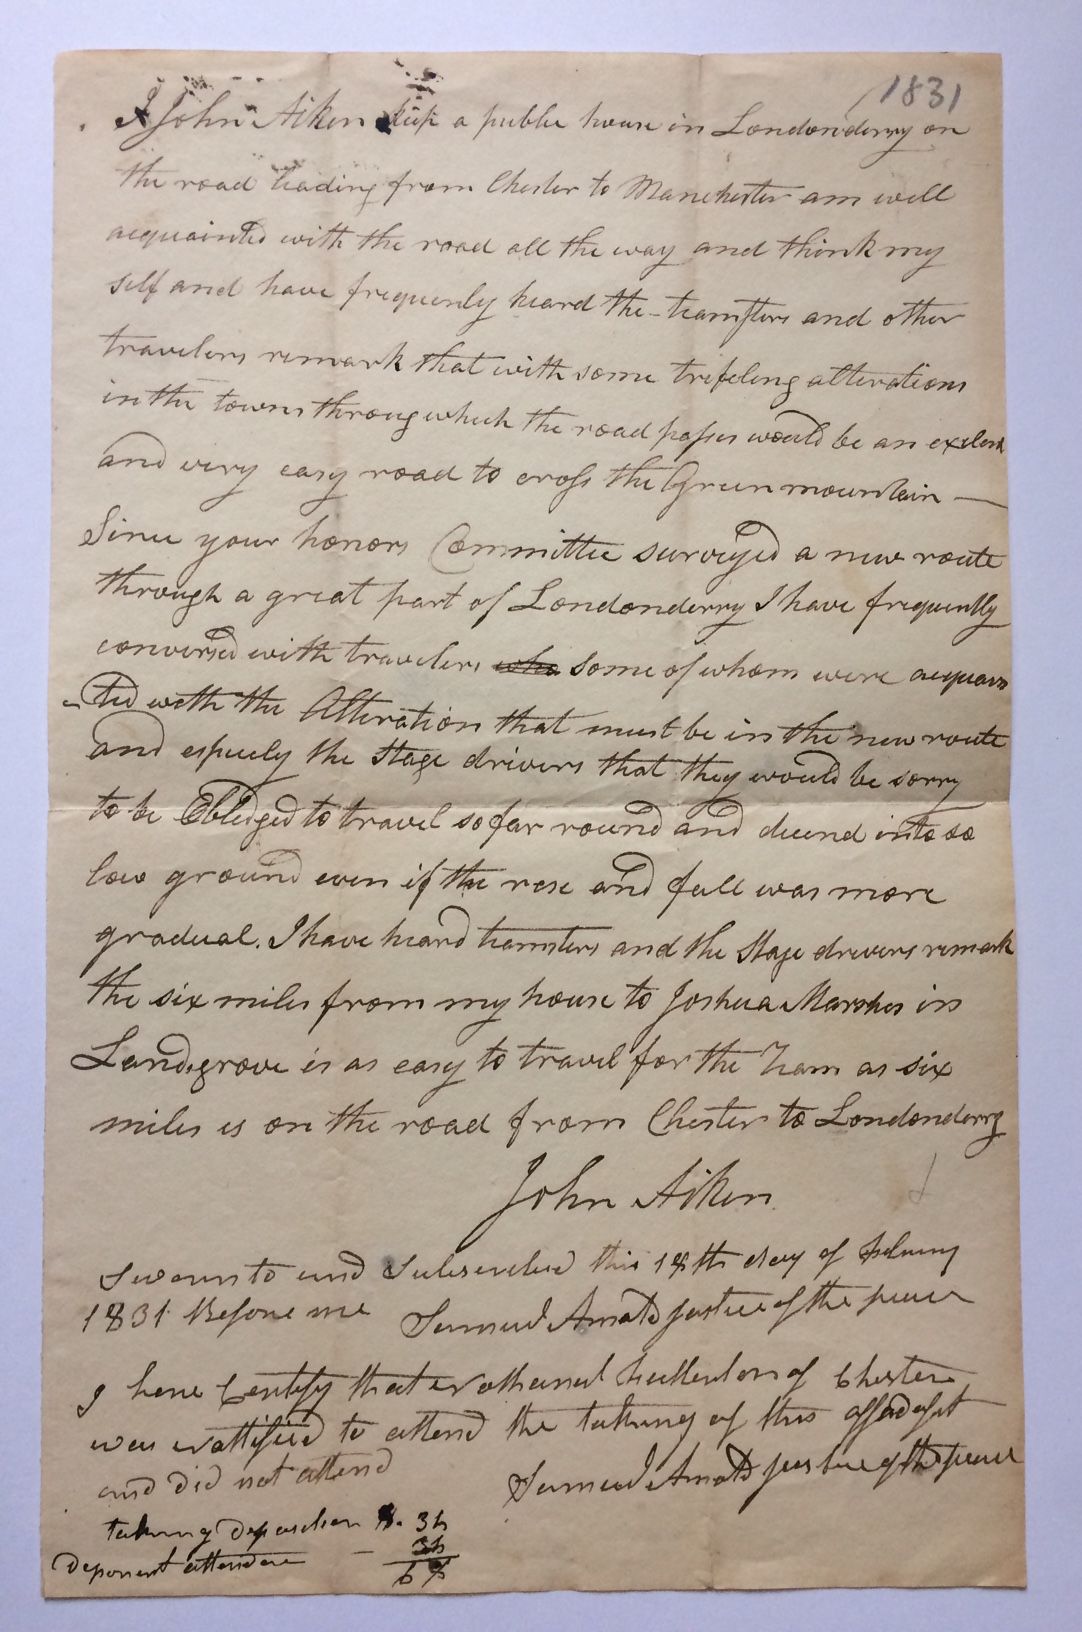 1831
I John Aiken keep a public house in Londonderry on
the road leading from Chester to Manchester am well
acquainted with the road all the way and think my
self and have frequenly heard the teamsters and other
travelers remark that with some trifeling alterations
in the towns throug which the road passes would be an exelent
and very easy road to cross the Green mountain —
Since your honors Committee surveyed a new route
through a great part of Londonderry I have frequently
conversed with travelers who some of whom were acquain
ted with the Alteration that must be in the new route
and especely the Stage drivers that they would be sorry
to be Obledged to travel so far round and decend into so
low ground even if the rise and fall was more
gradual. I have heard teamsters and the Stage drivers remark
the six miles from my house to Joshua Marshes in
Landgrove is as easy to travel for the Team as six
miles is on the road from Chester to Londonderry
John Aiken
Sworn to and Subscribed this 18th day of February
1831 Before me Samuel Arnold justice of the peace
I here Certify that Nathaniel of Chester
was nottifiied to attend the takung of this
and did not attend
Samuel Arnold justice of the peace
takung Deposition 34
Deponent attendance — 34
68